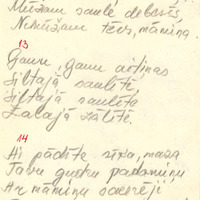 Mūžam saule debesīs,
Nemūžam tēvs, māmiņa.
13
Ganu, ganu aitiņas
Siltajā saulītē,
Siltajā saulītē
Zaļajā zālītē.
14
Ai pādīte sīka, maza
Tavu gudru padomiņu
Ar māmiņu saderēji